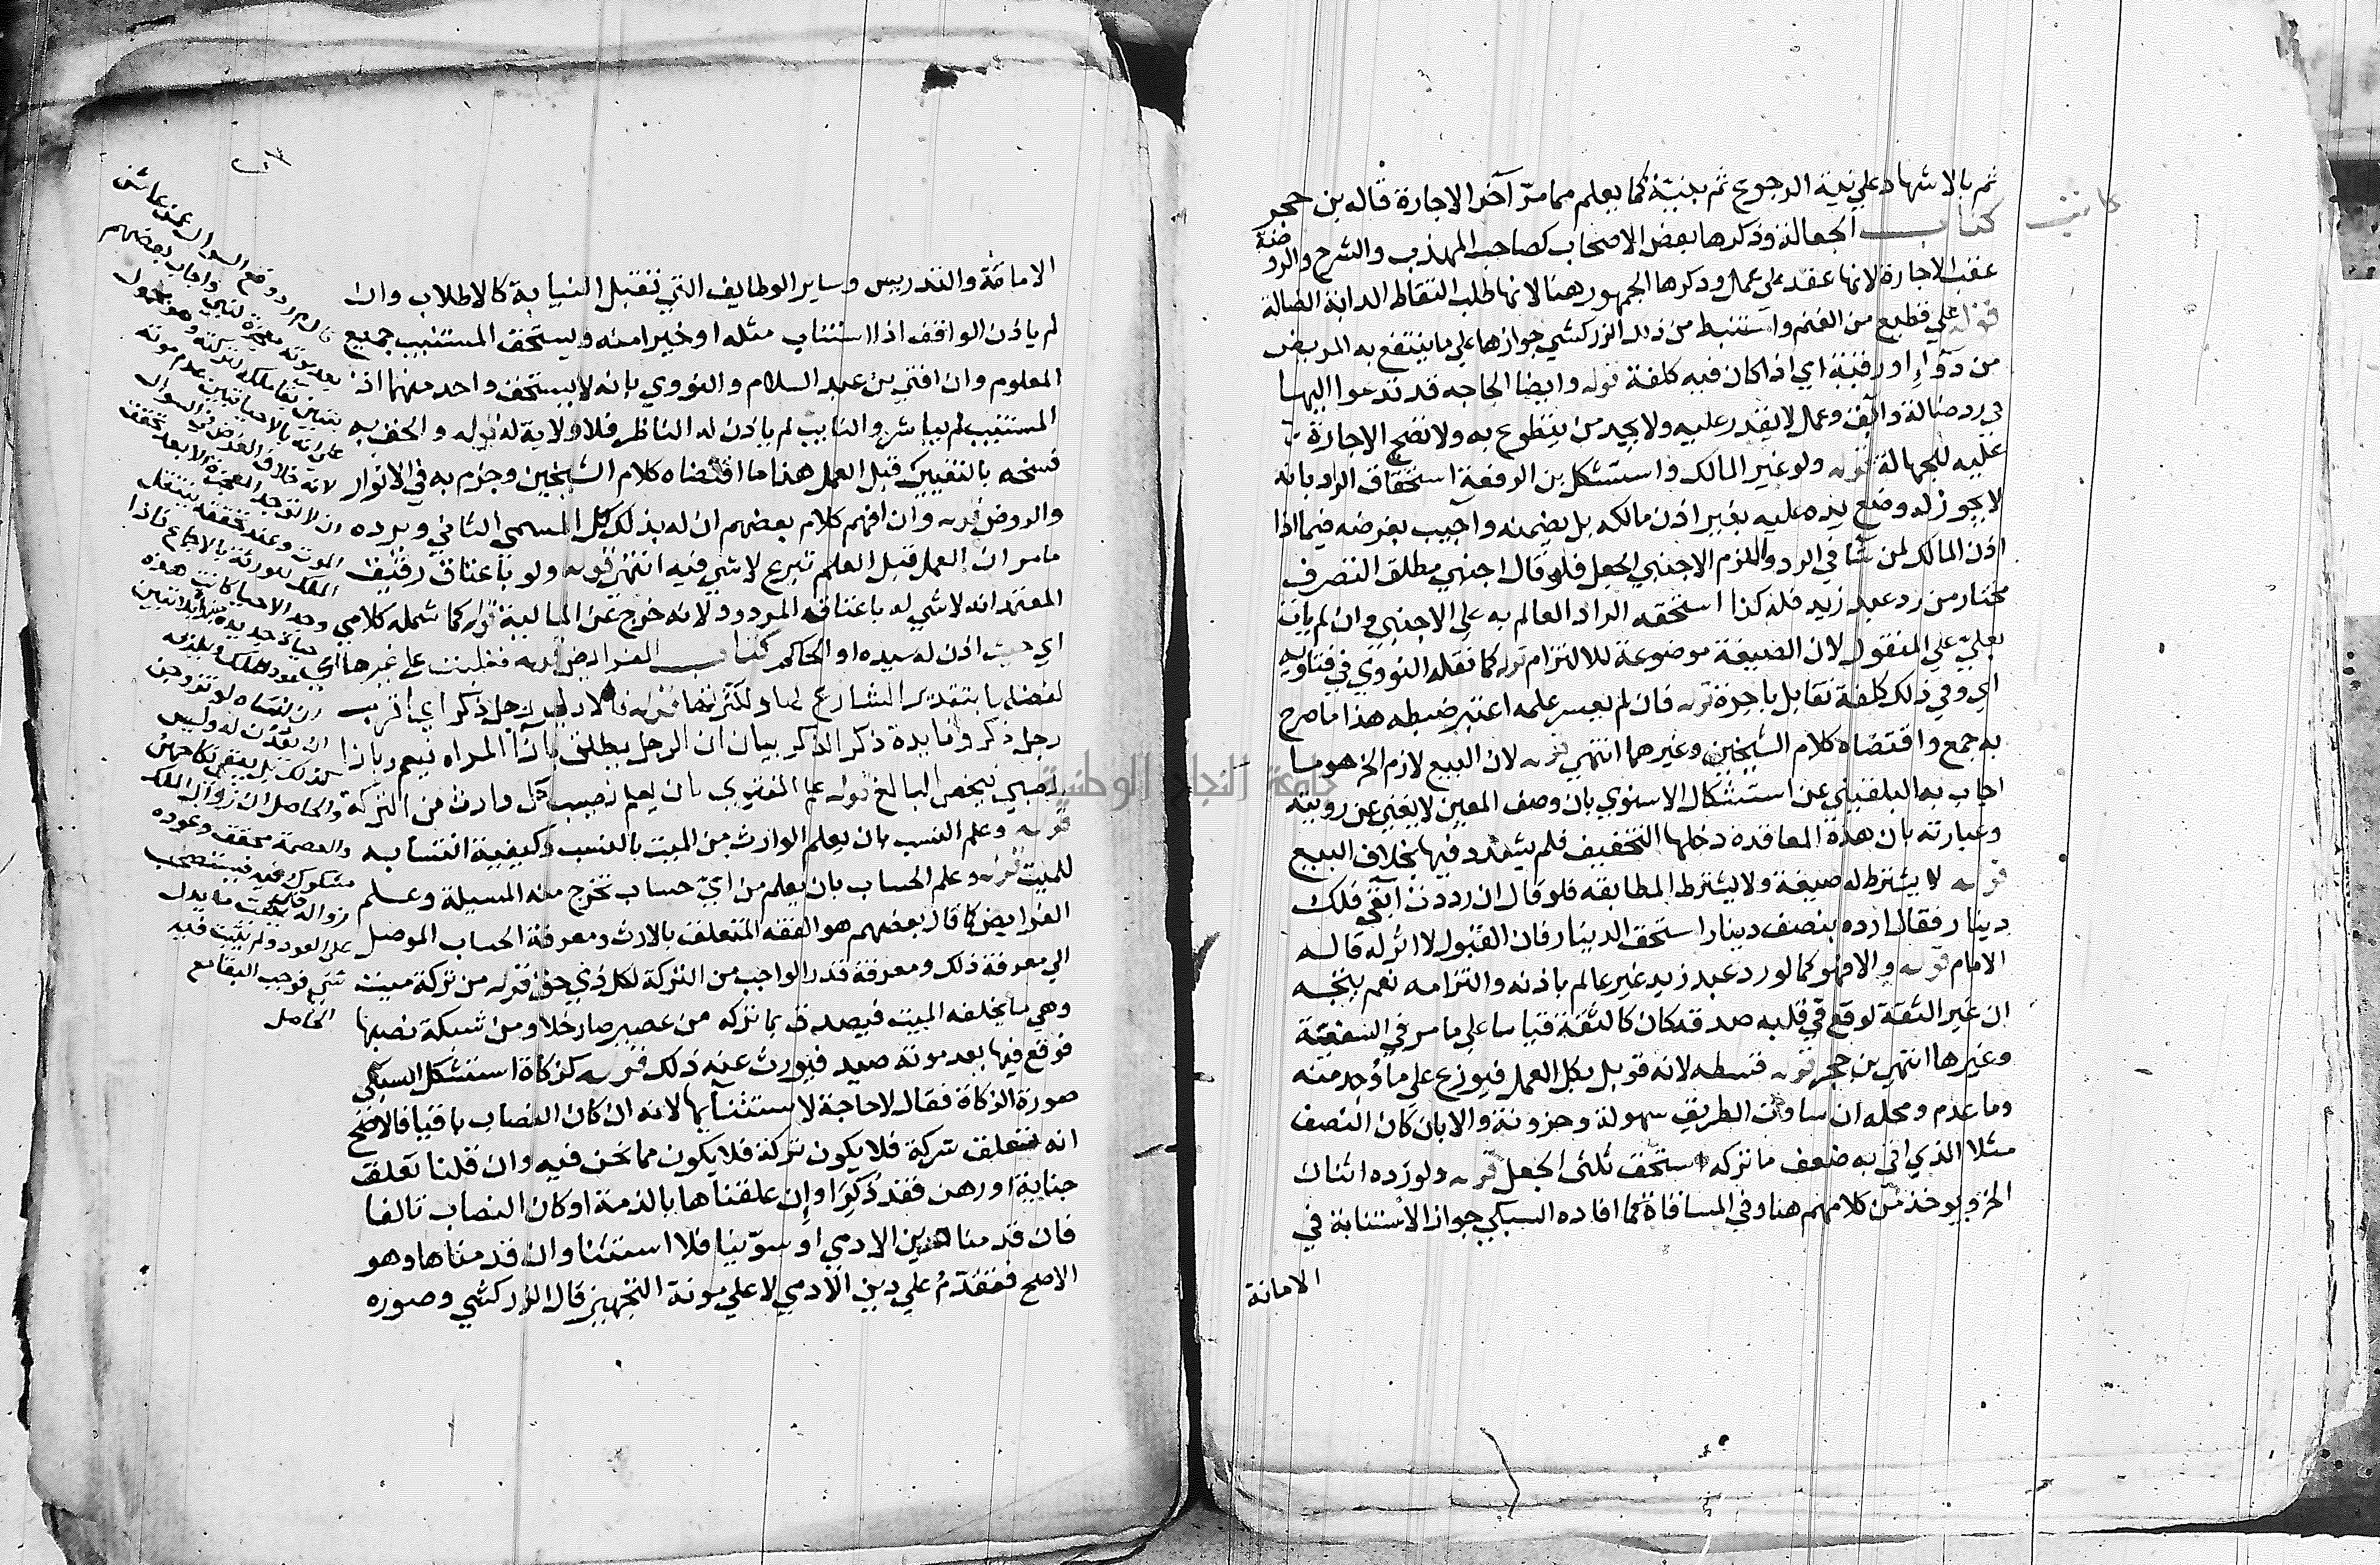 ثم بالاشهاد علي نية الرجوع ثم بنيته كما يعلم مما مرّ آخر الاجارة قاله بن حجر
كتاب الجعالة وذكرها بعض الاصحاب كصاحب المهذب والشرح والروضة
عقب الاجارة لانها عقد على عمل وذكرها الجمهور هنا لانها طلب التقاط الدابة الضالة
قوله علي قطيع من الغنم واستنبط من ذلك الزركشي جوازها علي ما ينتفع به المريض
من دوآءٍ او رقية اي اذا كان فيه كلفة قوله وايضا الحاجه قد تدعوا اليها
في رد ضالة وآبق وعمل لا يقدر عليه ولا يجد من يتطوع به ولا تصح الاجارة
عليه للجهالة قوله ولو غير المالك واستشكل بن الرفعة استحقاق الراد بانه
لا يجوز له وضع يده عليه بغير اذن مالكه بل يضمنه واجيب بفرضه فيما اذا
اذن المالك لمن شا في الرد والتزم الاجنبي الجعل فلو قال اجنبي مطلق التصرف
مختار من رد عبد زيد فله كذا استحقه الراد العالم به علي الاجنبي وان لم يات
بعليّ علي المنقول لان الصيغة موضوعة للالتزام قوله كما نقله النووي في فتاويه
اي وفي ذلك كلفة تقابل باجرة قوله فان لم يعسر علمه اعتبر ضبطه هذا ما صرح
به جمع واقتضاه كلام الشيخين وغيرهما انتهي قوله لان البيع لازم الخ هو ما
اجاب به البلقيني عن استشكال الاسنوي بان وصف المعين لا يغني عن رويته
وعبارته بان هذه المعاقدة دخلها التخفيف فلم يشدد فيها بخلاف البيع
قوله لا يشترط له صيغة ولا يشترط المطابقه فلو قال ان رددت آبقي فلك
دينار فقال ارده بنصف دينار استحق الدينار فان القبول لا اثر له قاله
الامام قوله والا فهو كما لو رد عبد زيد غير عالم باذنه والتزامه نعم يتجه
ان غير الثقة لو وقع في قلبه صدقه كان كالثقة قياسا علي ما مر في الشفعة
وغيرها انتهي بن حجر قوله قسطه لانه قوبل بكل العمل فيوزع علي ما وُجد منه
وما عدم ومحله ان ساوت الطريق سهولة وحزونة والا بان كان النصف
مثلا الذي اتي به ضعف ما تركه استحق ثلثي الجعل قوله ولو رده اثنان
الخ ويوخذ من كلامهم هنا وفي المساقاة مما افاده السبكي جواز الاستنابة في
الامانة
الامامة والتدريس وساير الوظايف التي تقبل النيابة كالاطلاب وان
لم ياذن الواقف اذا استناب مثله او خيرا منه ويستحق المستنيب جميع
المعلوم وان افتي بن عبد السلام والنووي بانه لا يستحق واحد منهما اذ
المستنيب لم يباشر والنايب لم ياذن له الناظر فلا ولاية له قوله والحق به
فسخه بالتفييك قبل العمل هذا ما اقتضاه كلام الشيخين وجزم به في الانوار
والروض قوله وان افهم كلام بعضهم ان له بذلك كل المسمي الثاني ويرده
ما مر ان العمل قبل العلم تبرع لا شي فيه انتهي قوله ولو باعتاق رقيق
المعتمد انه لا شي له باعتاقه المردود لانه خرج عن المالية قوله كما شمله كلامي
اي حيث اذن له سيده او الحاكم كتاب الفرايض قوله فغلبت علي غيرها اي
لفضلها بتقدير الشارع لها ولكثرتها قوله فلاولي رجل ذكر اي اقرب
رجل ذكر وفايدة ذكر الذكر بيان ان الرجل يطلق بازا المراه فيعم وبازا
الصبي فيخص البالغ قوله علم الفتوي بان يعلم نصيب كل وارث من التركة
قوله وعلم النسب بان يعلم الوارث من الميت بالنسب وكيفية انتسابه
للميت قوله وعلم الحساب بان يعلم من ايّ حساب تخرج منه المسيلة وعلم
الفرايض كما قال بعضهم هو الفقه المتعلق بالارث ومعرفة الحساب الموصل
الي معرفة ذلك ومعرفة قدر الواجب من التركة لكل ذي حق قوله من تركة ميت
وهي ما يخلفه الميت فيصدق بما تركه من عصير صار خلا ومن شبكة نصبها
فوقع فيها بعد موته صيد فيورث عنه ذلك قوله كزكاة استشكل السبكي
صورة الزكاة فقال لا حاجة لاستثنآيها لانه ان كان النصاب باقيا فالاصح
انه تتعلق شركة فلا يكون تركة فلا يكون مما نحن فيه وان قلنا تعلق
جناية او رهن فقد ذُكِرَا وإن علقناها بالذمة او كان النصاب تالفا
فان قدمنا دين الادمي او سوّينا فلا استثنا وان قدمناها وهو
الاصح فتقدّمُ علي دين الادمي لا علي مونة التجهيز قال الزركشي وصوره
وقع السوال عمن عاش
بعد موته معجزة لنبي واجاب بعضهم
لانه خلاف الفرض في السوال
الموت وعند تحققه ينتقل
الملك للورثة بالاجماع فاذا
وجد الاحيا كانت هذه
حياة جديدة
كذلك بل يبقي نكاحهن
والحاصل ان زوال الملك
والعصمة محقق وعوده
مشكوك فيه فيستصحب
زواله حتي يثبت ما يدل
علي العود ولم يثبت فيه
شي فوجب البقا مع
الحاصل